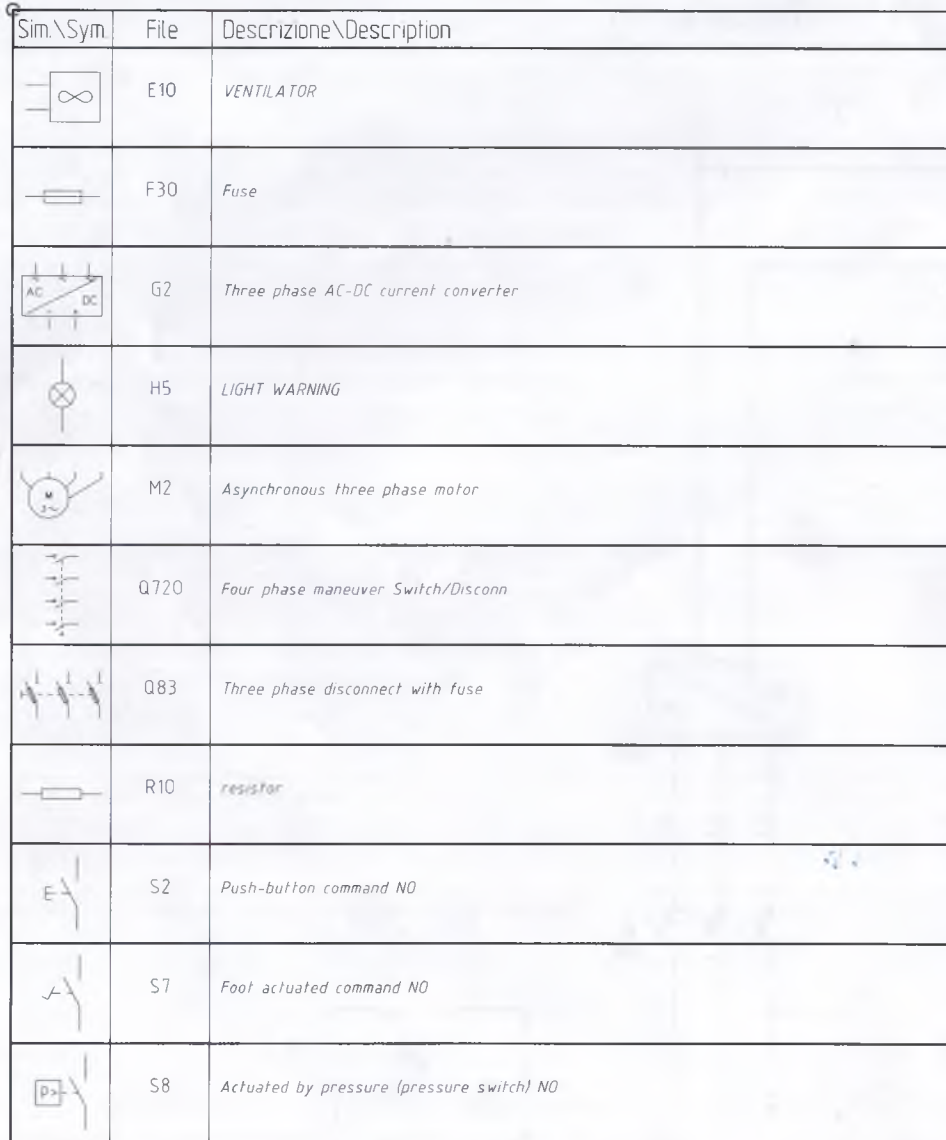 Sim.\Sym. File Descrizione\Description
E10 VENTILATOR
F30 Fuse
AC DC G2 Three phase AC-DC current converter
H5 LIGHT WARNING
M 3~ M2 Asynchronous three phase motor
Q720 Four phase maneuver Switch/Disconn
Q83 Three phase disconnect with fuse
R10 resistor
S2 Push-button command NO
S7 Foot actuated command NO
P> S8 Actuated by pressure (pressure switch) NO